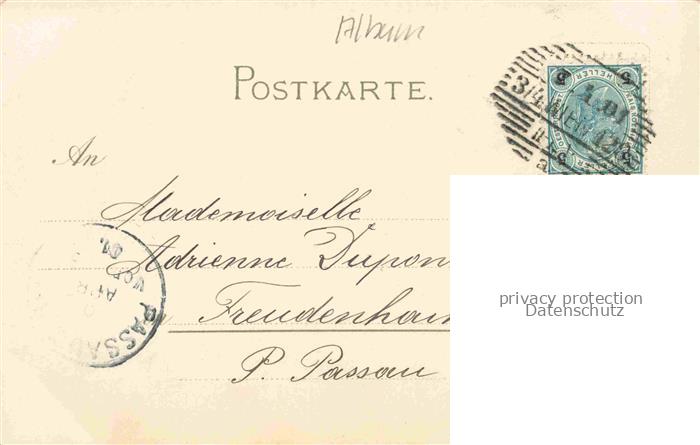 Album
POSTKARTE.
5 HELLER 5
3/4 WIEN 12
4.01
An
Mademoiselle
Adrienne Dupon
Freudenhain
P. Passau
PASSAU
APR
VOR
01.
privacy protection
Datenschutz